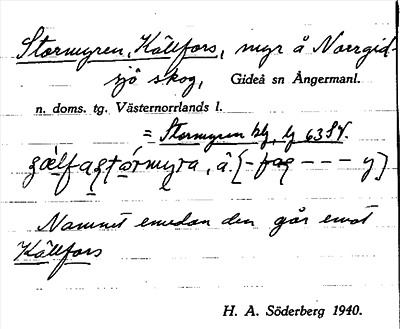 Stormyren, Källfors, myr å Norrgid-
sjö skog, Gideå sn Ångermanl.
n. doms. tg. Västernorrlands l.
= Stormyren
Namnet emedan den går emot
Källfors
H. A. Söderberg 1940.